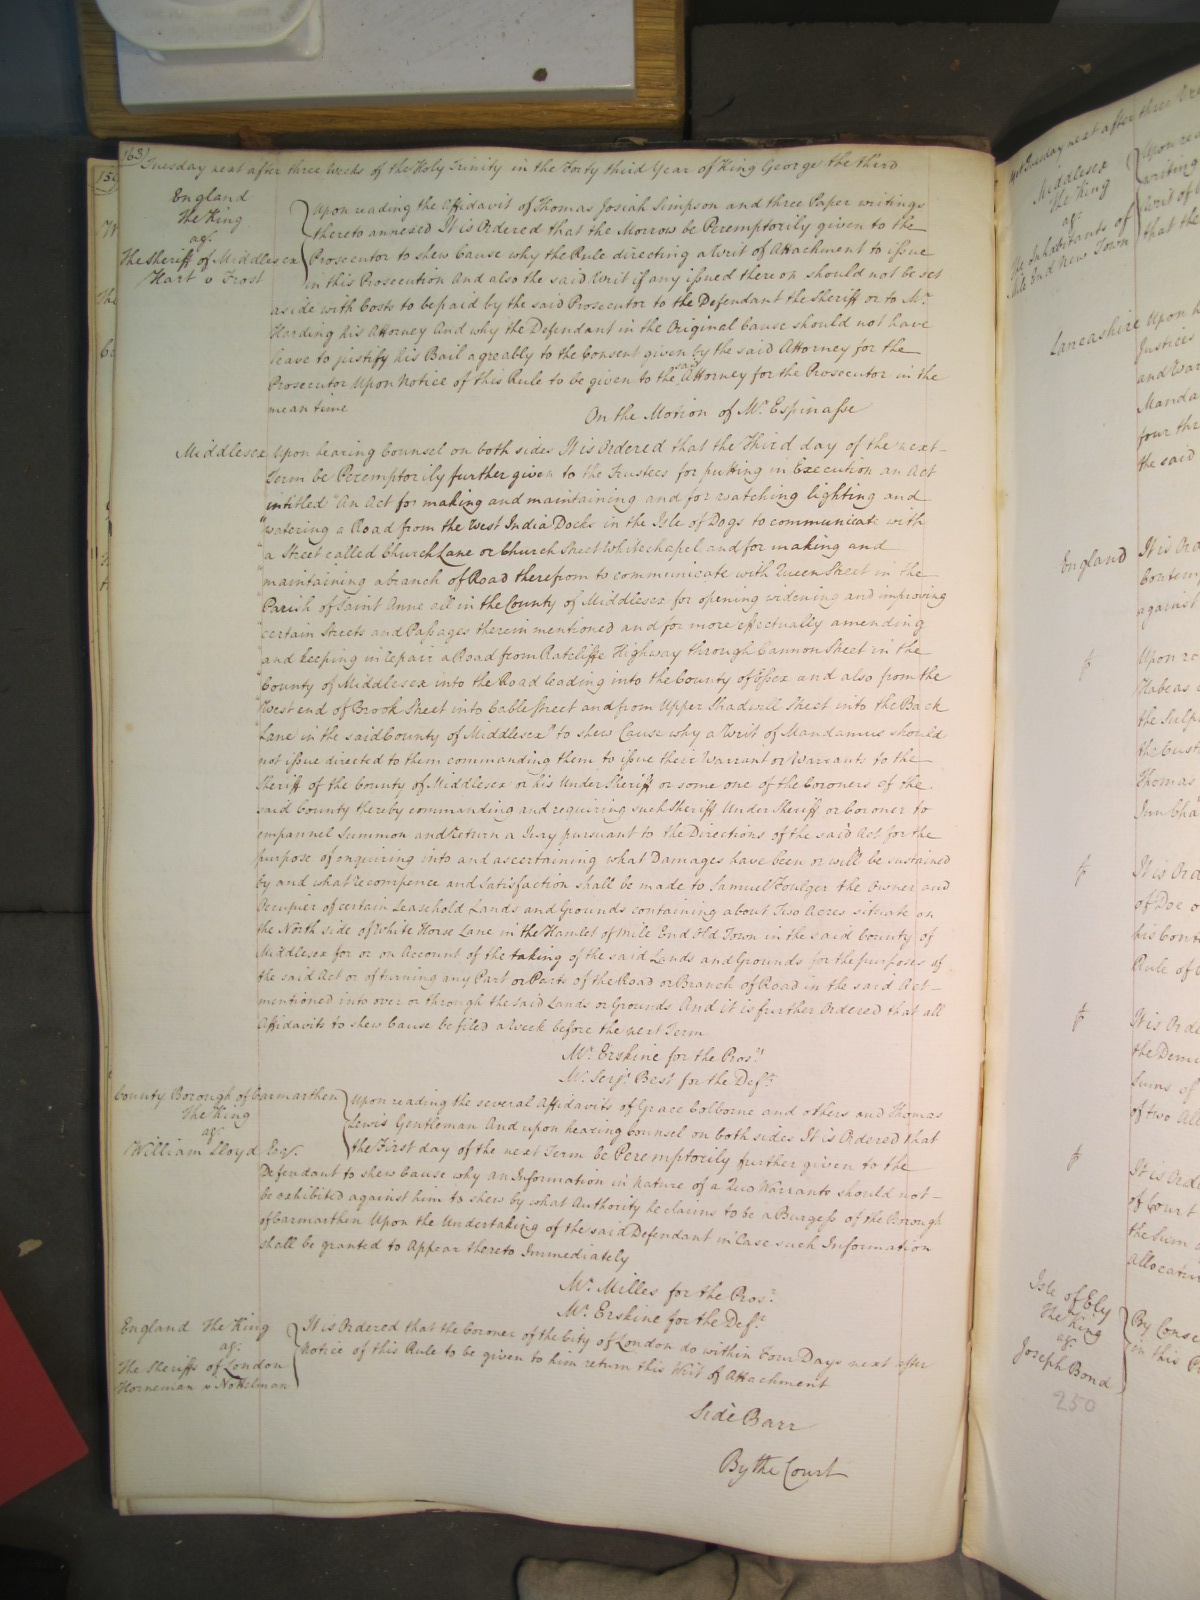 163
Tuesday next after three Weeks of the Holy Trinity in the Forty third Year of King George the third
England
The King
agt.
The Sheriff of Middlesex
Hart v Frost
Upon reading the Affidavit of Thomas Josiah Simpson and three Paper writings
thereto annexed It is Ordered that the Morrow be Peremptorily given to the
Prosecutor to shew Cause why the Rule directing a Writ of Attachment to issue
in this Prosecution And also the said Writ if any issued thereon should not be set
aside with Costs to be paid by the said Prosecutor to the Defendant the Sheriff or to Mr.
Harding his Attorney And why the Defendant in the Original Cause should not have
leave to justify his Bail agreably to the Consent given by the said Attorney for the
Prosecutor Upon Notice of this Rule to be given to the said Attorney for the Prosecutor in the
mean time
On the Motion of Mr. Espinasse
Middlesex Upon hearing Counsel on both sides It is Ordered that the Third day of the next
Term be Peremptorily further given to the Trustees for putting in Execution an Act
intitled "An Act for making and maintaining and for watching lighting and
"watering a Road from the West India Docks in the Isle of Dogs to communicate with
"a Street called Church Lane or Church Street Whitechapel and for making and
"maintaining a branch of Road therefrom to communicate with Queen Street in the
"Parish of Saint Anne all in the County of Middlesex for opening widening and improving
"certain Streets and Passages therein mentioned and for more effectually amending
"and keeping in repair a Road from Ratcliffe Highway through Cannon Street in the
"County of Middlesex into the Road leading into the County of Essex and also from the
"West end of Brook Street into Cable Street and from Upper Shadwell Street into the Back
"Lane in the said County of Middlesex" to shew Cause why a Writ of Mandamus should
not issue directed to them commanding them to issue their Warrant or Warrants to the
Sheriff of the County of Middlesex or his Under Sheriff or some one of the Coroners of the
said County thereby commanding and requiring such Sheriff Under Sheriff or Coroner to
empannel Summon and Return a Jury pursuant to the Directions of the said Act for the
purpose of enquiring into and ascertaining what Damages have been or will be sustained
by and what recompence and satisfaction shall be made to Samuel Foulger the Owner and
Occupier of certain Leasehold Lands and Grounds containing about Two Acres situate on
the North side of White Horse Lane in the Hamlet of Mile End Old Town in the said County of
Middlesex for or on Account of the taking of the said Lands and Grounds for the purposes of
the said Act or of turning any Part or Parts of the Road or Branch of Road in the said Act
mentioned into over or through the said Lands or Grounds And it is further Ordered that all
Affidavits to shew Cause be filed a Week before the next Term
Mr. Erskine for the Prosr.
Mr. Serjt. Best for the Deft.
County Borough of Carmarthen
The King
agt.
William Lloyd Esqr.
Upon reading the several Affidavits of Grace Colborne and others and Thomas
Lewis Gentleman And upon hearing Counsel on both sides It is Ordered that
the First day of the next Term be Peremptorily further given to the
Defendant to shew Cause why an Information in nature of a Quo Warranto should not
be exhibited against him to shew by what Authority he claims to be a Burgess of the Borough
of Carmarthen Upon the Undertaking of the said Defendant in Case such Information
shall be granted to Appear thereto Immediately
Mr. Milles for the Prosr.
Mr. Erskine for the Deft.
England The King
agt.
The Sheriffs of London
Horneman v Nottelman
It is Ordered that the Coroner of the City of London do within Four Days next after
Notice of this Rule to be given to him return this Writ of Attachment
Side Barr
By the Court
Tuesday next after three
Middlesex
The King
agt.
The Inhabitants of
Mile End New Town
Upon
writing
Writ of
that the
Lancashire Upon
Justices
and War
Manda
four thr
the said
England It is Ord
Contemp
against
Upon re
Habeas
the Sulp
the Cust
Thomas
It is Ord
of Doe
his Cont
Rule of
It is Orde
the Dem
Sums of
of two All
It is Orde
of Court
the Sum
allocatur
Isle of Ely
The King
agt.
Joseph Bond
By Conse
in this
250